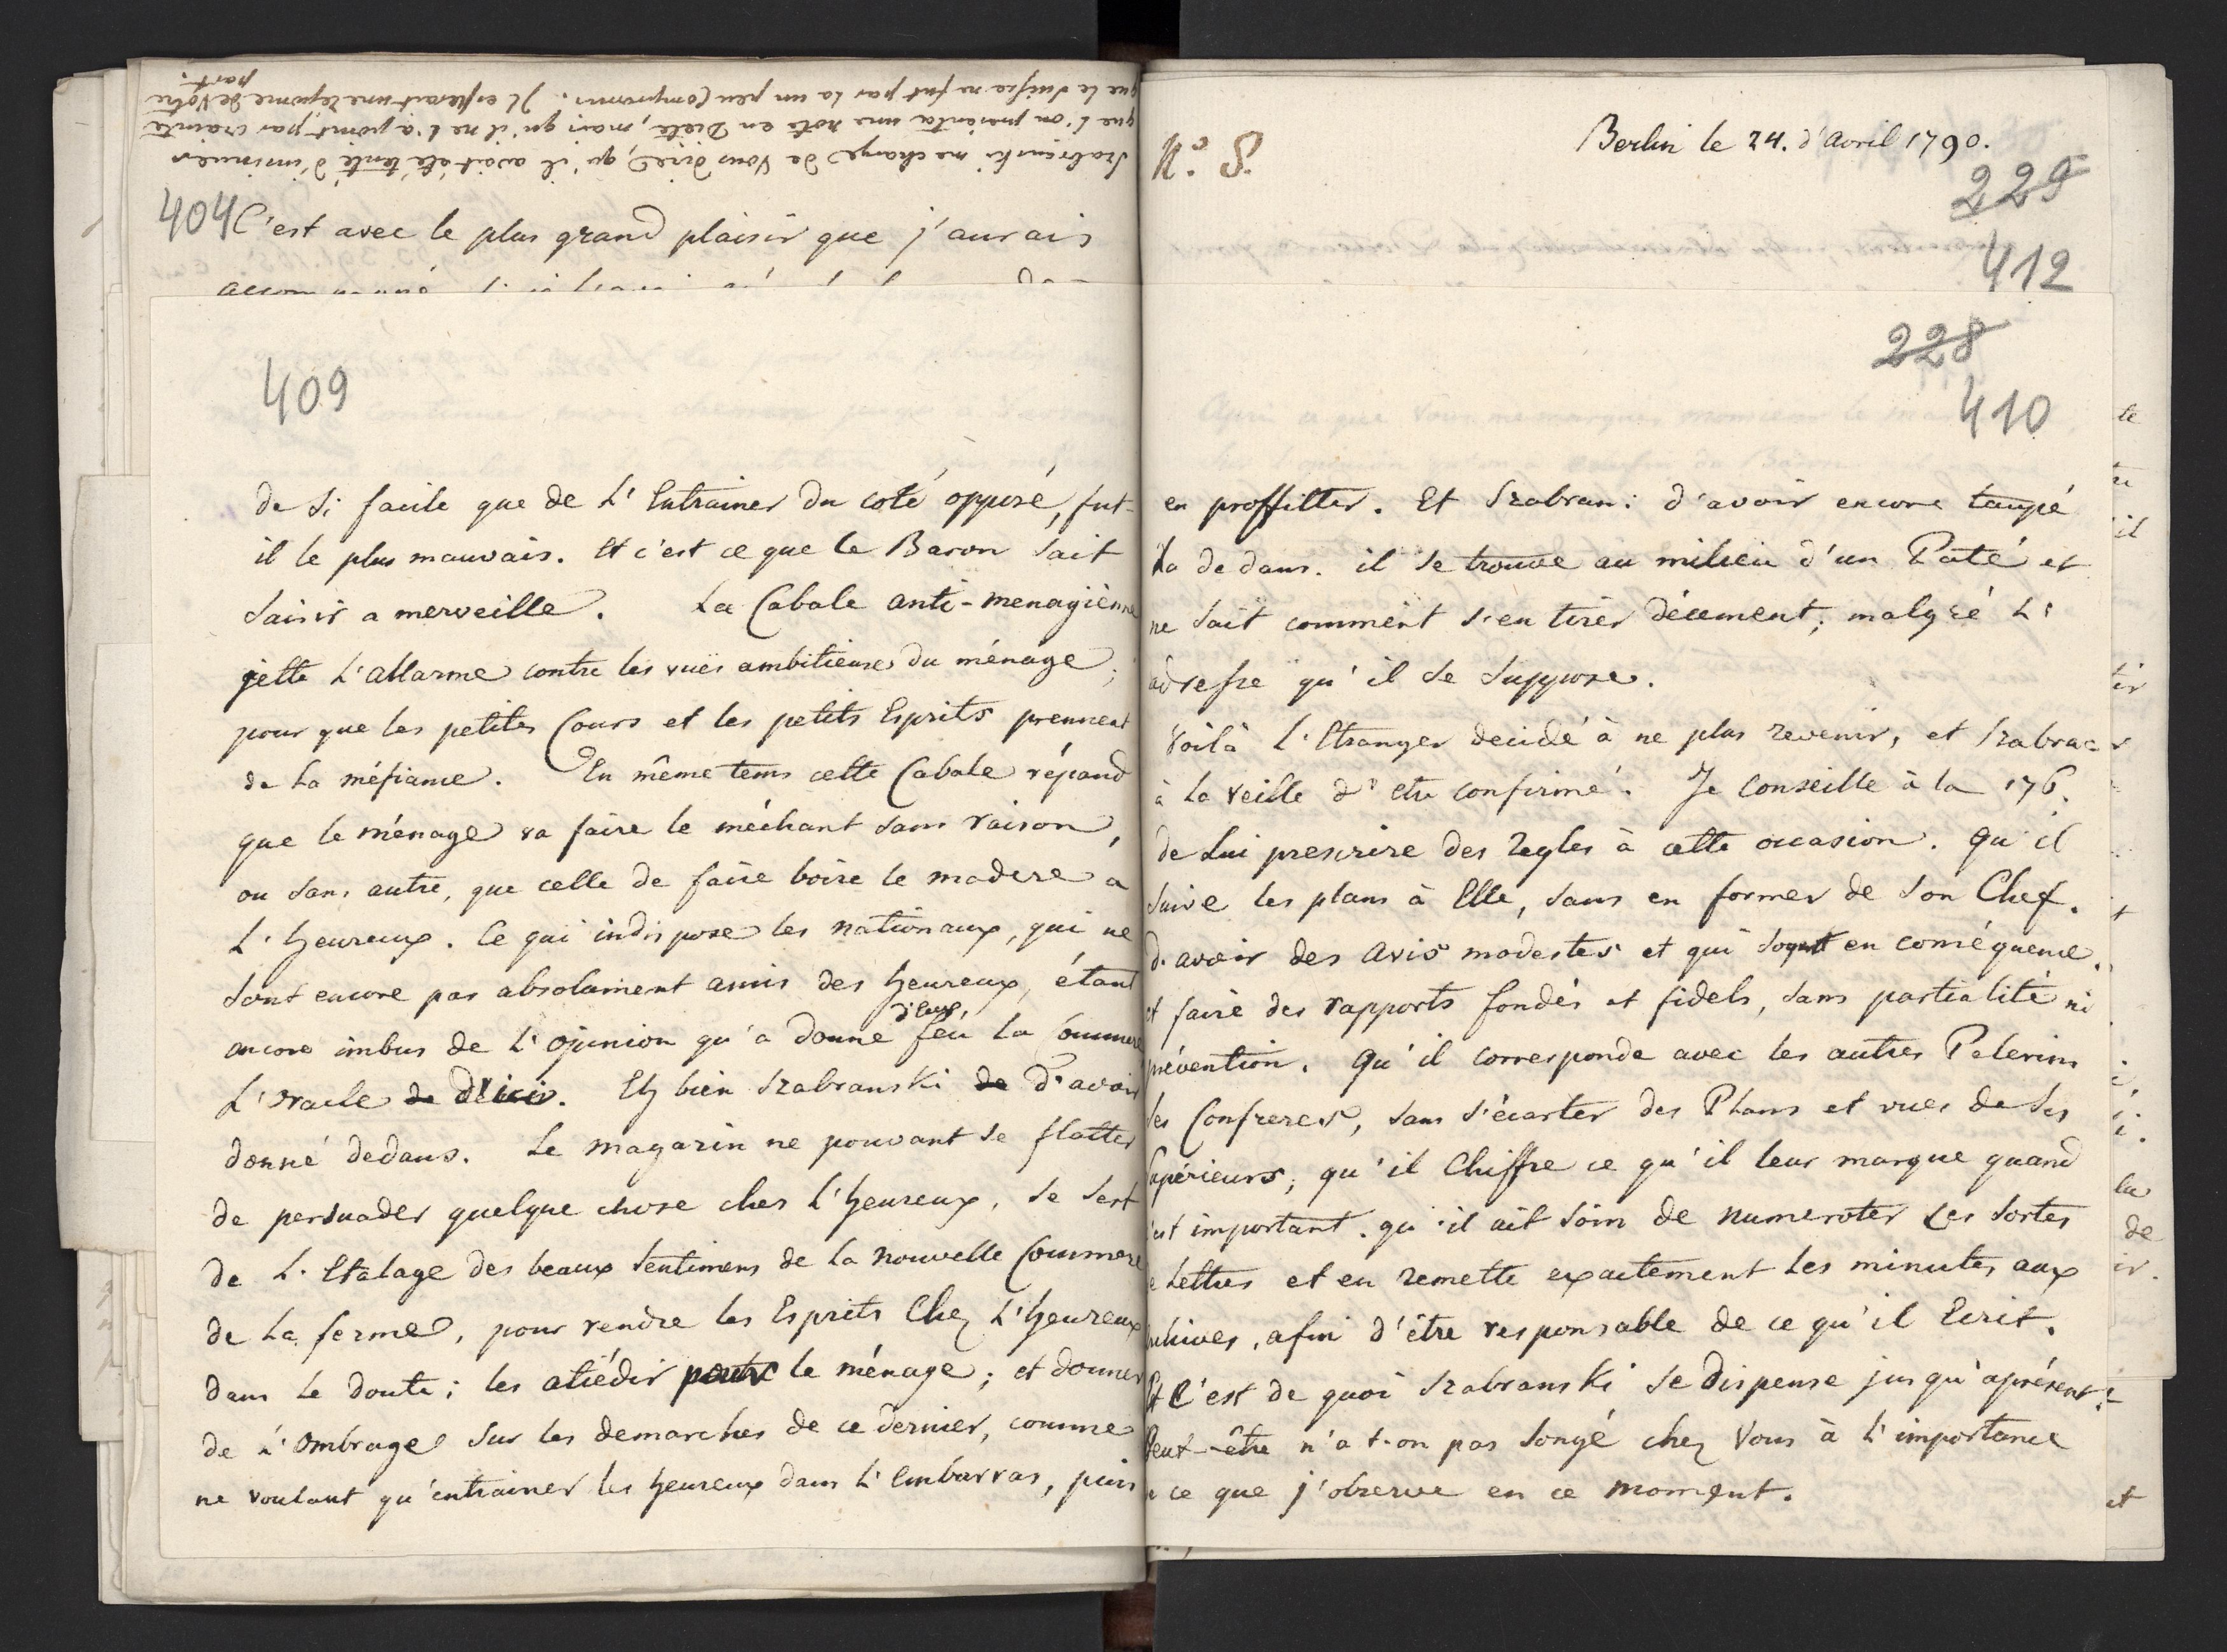 Szabranski me charge de vous dire, qu'il avait été tenté d'insinuer
que l'on présenta une note en Diete, mais qu'il ne l'a point par crainte
que le Suisse ne fut par la un peu Compromis. Il esperait une réponse de Votre
part.
404 C'est avec le plus grand plaisir que j'aurais
409
de si facile que de L'Entrainer du coté opposé, fut-
il le plus mauvais. Et c'est ce que le Baron sait
saisir a merveille. La Cabale anti-menagiènne
jette L'allarme contre les vuës ambitieuses du ménage;
pour que les petites Cours et les petits Esprits prennent
de la méfiance. En même tems cette Cabale répand
que le ménage va faire le méchant sans raison,
ou sans autre, que celle de faire boire le madere a
L'heureux. Ce qui indispose les nationaux, qui ne
sont encore pas absolument amis des heureux, étant
encore imbus de L'opinion qu'a donné d'eux feu la Commere
L'oracle de d'ici. Eh bien Szabranski de d'avoir
donné dedans. Le magazin ne pouvant se flatter
de persuader quelque chose chez L'heureux, se sert
de L'Etalage des beaux sentimens de la nouvelle Commere
de la ferme, pour rendre les Esprits Chez L'heureux
dans le doute; les atiédir le ménage; et donner
de L'ombrage sur les demarches de ce dernier, comme
ne voulant qu'entrainer les heureux dans L'embarras, puis
N.° 8.
Berlin le 24. d'Avril 1790.
229
412
228
410
en proffitter. Et Szabran: d'avoir encore taupé
la dedans. il se trouve au milieu d'un Paté et
ne sait comment s'en tirer décement, malgré L'
adresse qu'il se suppose.
Voilà L'Etranger decidé à ne plus revenir, et Szabrac
à la veille d'etre confirmé. Je conseille à la 176.
de lui prescrire des regles à cette occasion. Qu'il
suive les plans à Elle, sans en former de son Chef.
d'avoir des avis modestes et qui soyent en conséquence.
et faire des rapports fondés et fidels, sans partialité ni
prévention. Qu'il corresponde avec les autres Pelerins
ses Confreres, sans s'écarter des Plans et vues de ses
Supérieurs; qu'il Chiffre ce qu'il leur marque quand
c'est important. qu'il ait soin de numeroter ces sortes
de Lettres et en remette exactement les minutes aux
archives, afin d'être responsable de ce qu'il Ecrit.
Et C'est de quoi Szabranski se dispense jusqu'aprésent:
Peut-être n'a t-on pas songé chez Vous à L'importance
ce que j'observe en ce moment.